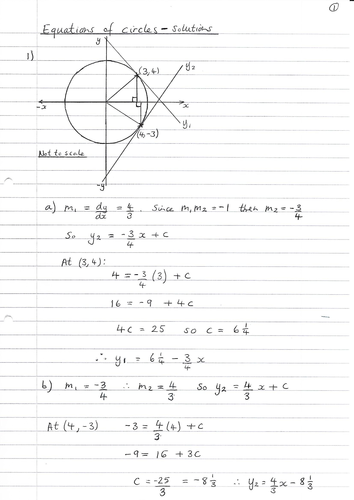 ①
Equations of circles - solutions
1)
y
y₂
(3,4)
-x
x
(4,-3)
y₁
Not to scale
-y
a) m₁ = dy/dx = 4/3 . Since m₁m₂ = -1 then m₂ = -3/4
So y₂ = -3/4 x + c
At (3,4):
4 = -3/4 (3) + c
16 = -9 + 4c
4c = 25 so c = 6 1/4
∴ y₁ = 6 1/4 - 3/4 x
b) m₁ = -3/4 ∴ m₂ = 4/3 So y₂ = 4/3 x + c
At (4, -3) -3 = 4/3 (4) + c
-9 = 16 + 3c
c = -25/3 = -8 1/3 ∴ y₂ = 4/3 x - 8 1/3